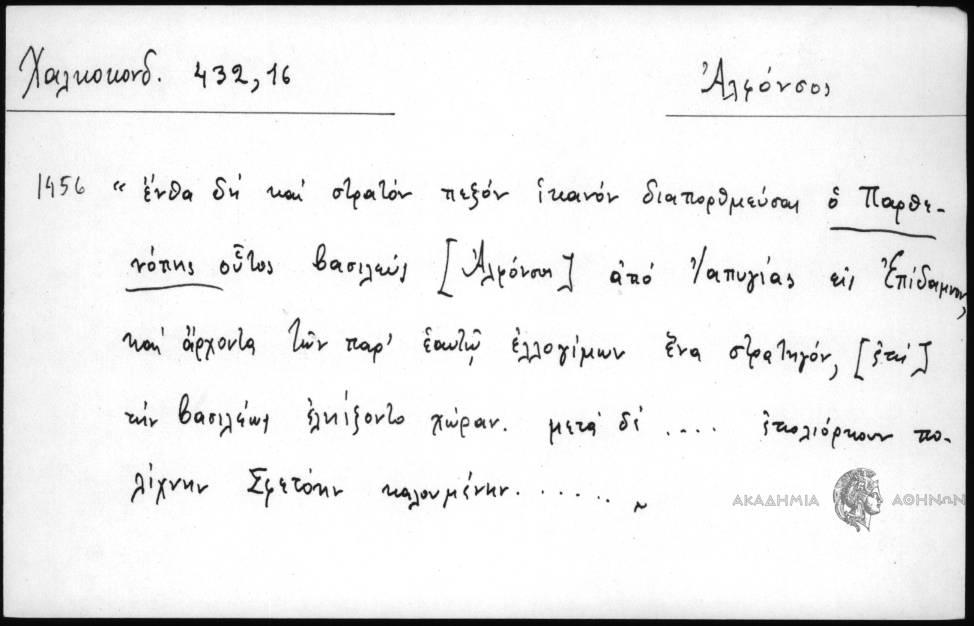 Χαλκοκονδ. 432,16
Ἀλφόνσος
1456 “ ἔνθα δὴ καὶ στρατὸν πεζὸν ἱκανὸν διαπορθμεύσας ὁ Παρθε-
νόπης οὗτος βασιλεὺς [Ἀλφόνσος] ἀπὸ Ἰαπυγίας εἰς Ἐπίδαμνον,
καὶ ἄρχοντα τῶν παρ' ἑαυτῷ ἐλλογίμων ἕνα στρατηγόν, [ἐπὶ]
τὴν βασιλέως ἐληΐζοντο χώραν. μετὰ δὲ .... ἐπολιόρκουν πο-
λίχνην Σφετίην καλουμένην.......
ΑΚΑΔΗΜΙΑ ΑΘΗΝΩΝ